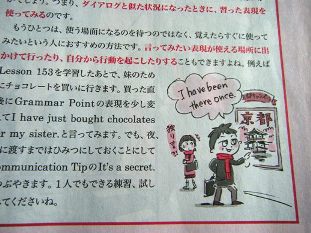 でしょう。つまり、ダイアログと似た状況になったときに、習った表現を
使ってみるのです。
もうひとつは、使う場面になるのを待つのではなく、覚えたらすぐに使って
みたいという人におすすめの方法です。言ってみたい表現が使える場所に出
かけて行ったり、自分から行動を起こしたりすることもできますよね。例えば
Lesson 153を学習したあとで、妹のため
にチョコレートを買いに行きます。買った直
後にGrammar Pointの表現を少し変
てI have just bought chocolates
for my sister.と言ってみます。でも、夜、
に渡すまではひみつにしておくことにして
ommunication TipのIt's a secret.
ぶやきます。1人でもできる練習、試し
てくださいね。
I have been
there once.
京都